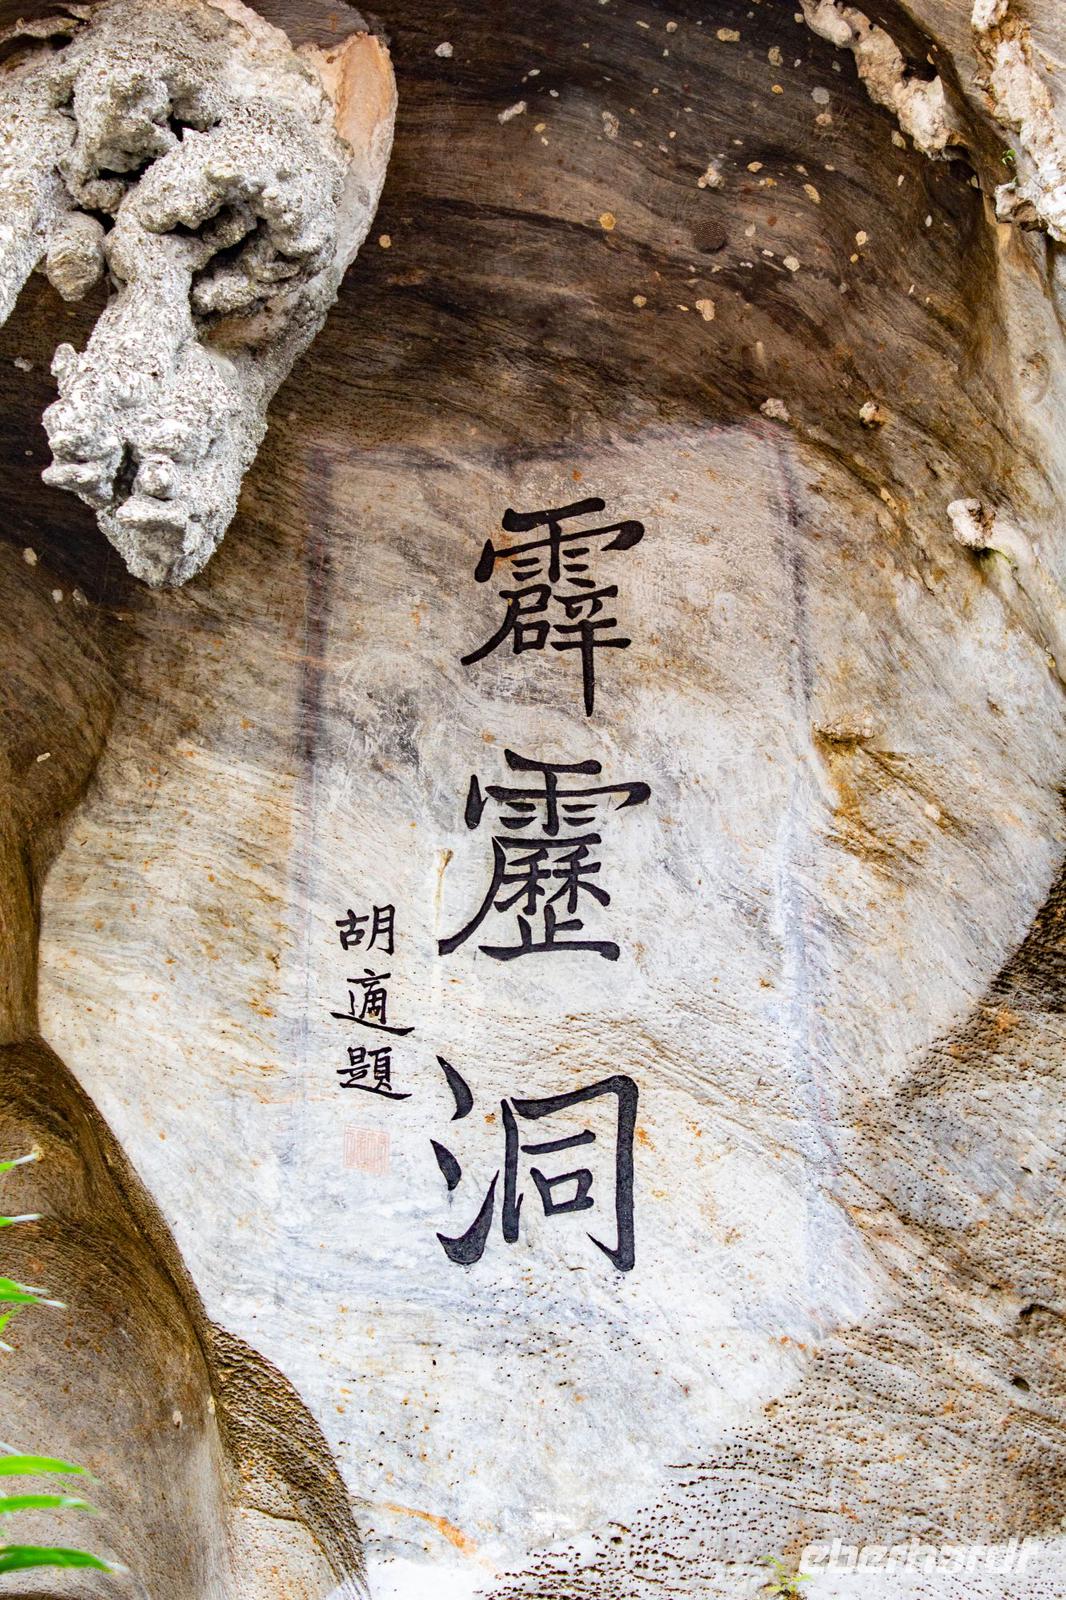 霹靂洞
胡適題
eberhardt